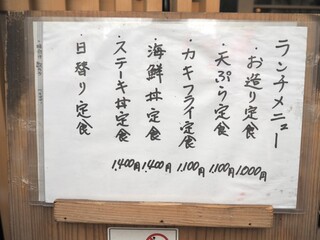 ランチメニュー
・お造り定食 1,000円
・天ぷら定食 1,100円
・カキフライ定食 1,100円
・海鮮丼定食 1,400円
・ステーキ丼定食 1,400円
・日替り定食